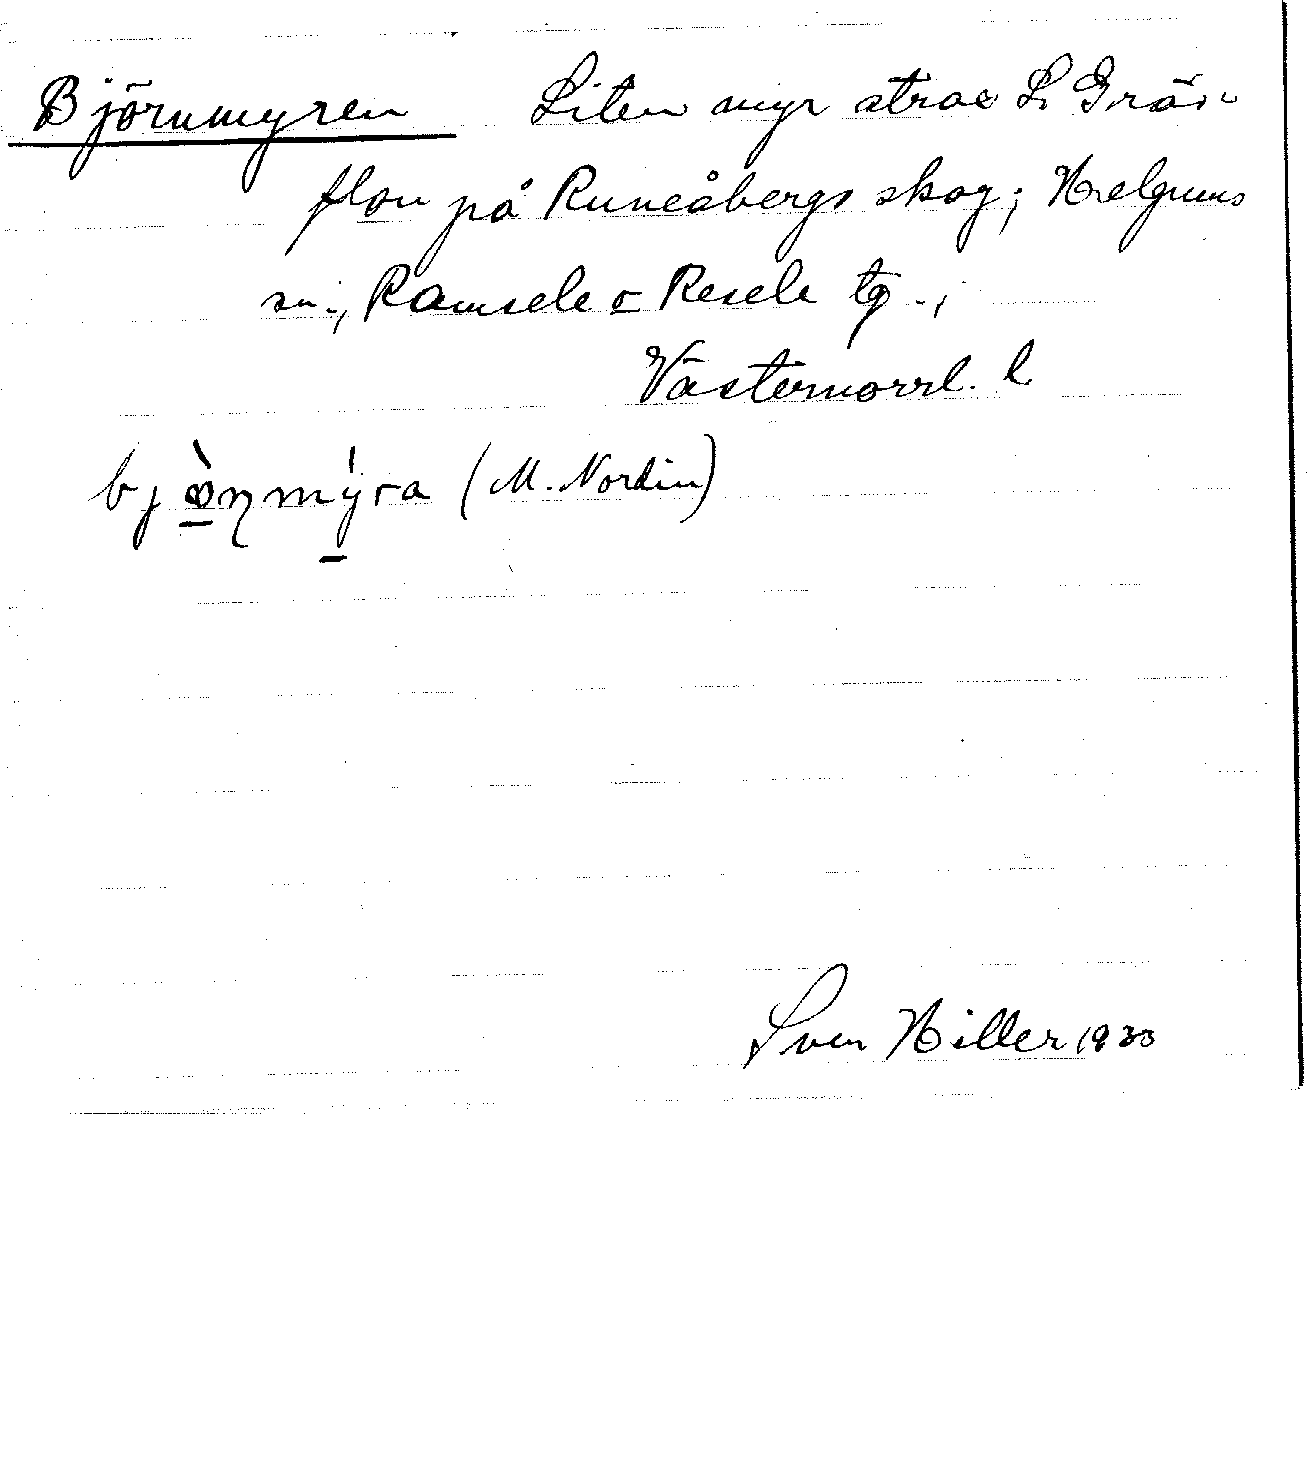 Björnmyren Liten myr strax S. Gräs-
flon på Runeåbergs skog; Helgums
sn., Ramsele o Resele tg.,
Västernorrl. l.
(M. Nordin)
Sven Hiller 1933